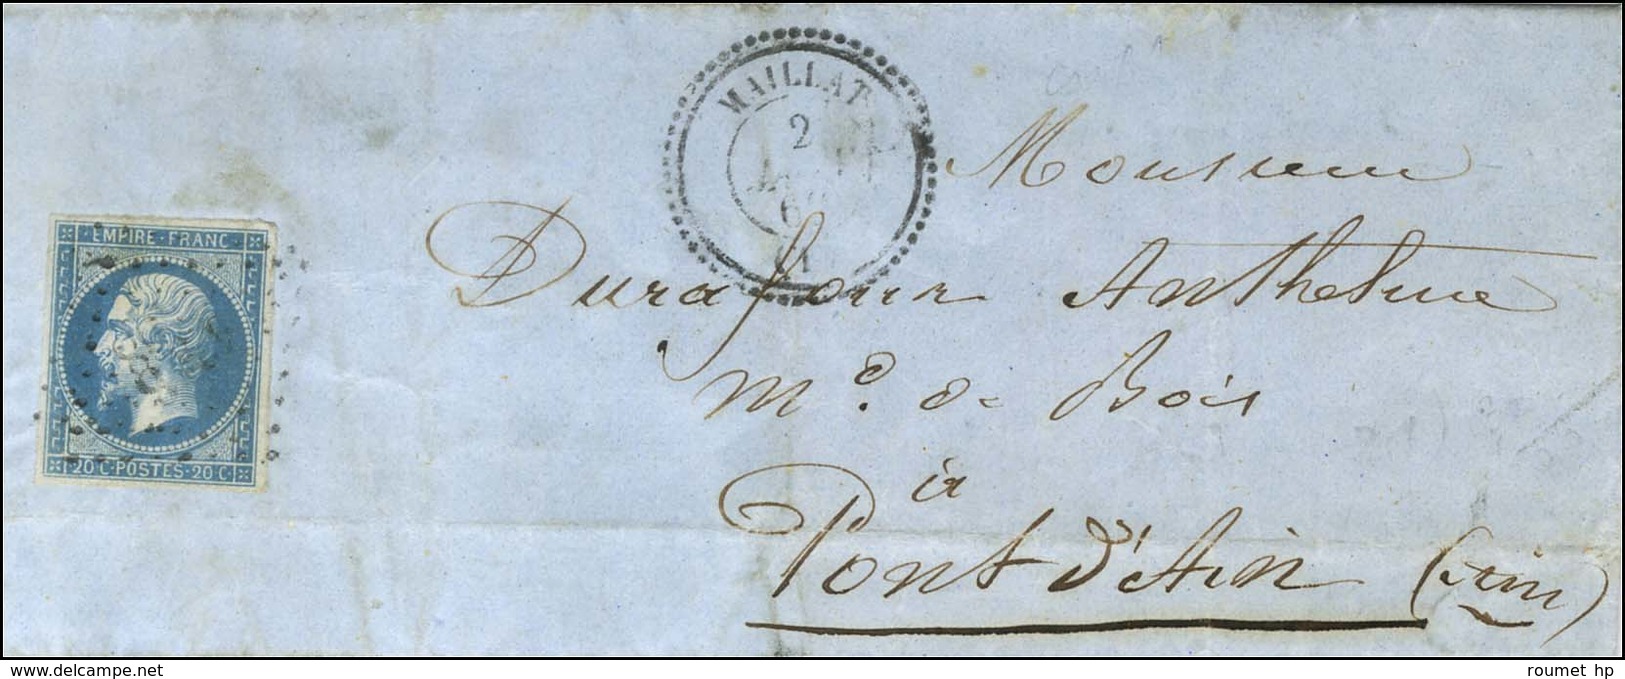 MAILLAT
2
EMPIRE · FRANC
20 C · POSTES · 20 C
Monsieur
Durafour Anthelme
Md. de Bois
à
Pont d'Ain (Ain)
www.delcampe.net
roumet hp